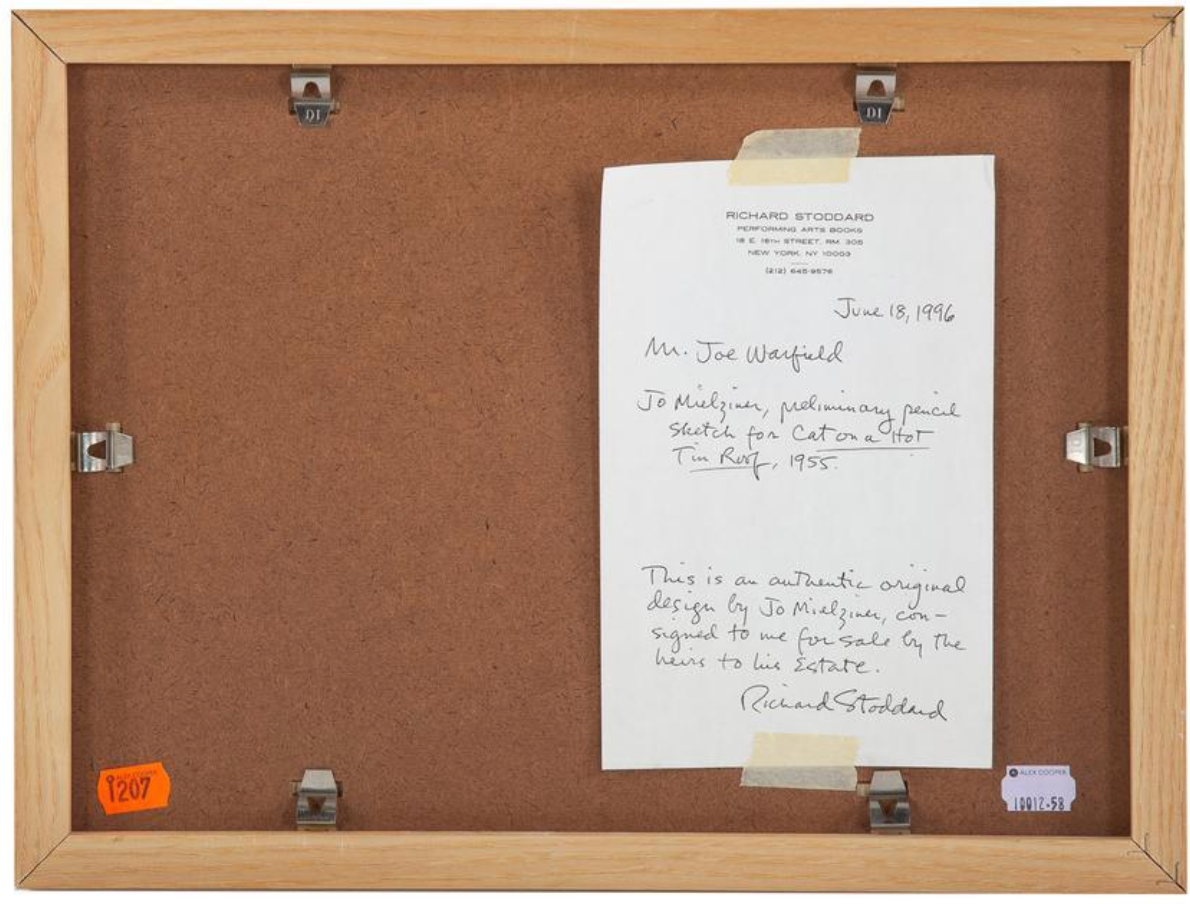 DI
DI
RICHARD STODDARD
PERFORMING ARTS BOOKS
18 E. 16TH STREET, RM. 305
NEW YORK, NY 10003
(212) 645-9576
June 18, 1996
Mr. Joe Warfield
Jo Mielziner, preliminary pencil
sketch for Cat on a Hot
Tin Roof, 1955.
This is an authentic original
design by Jo Mielziner, con-
signed to me for sale by the
heirs to his Estate.
Richard Stoddard
ALEX COOPER
1207
ALEX COOPER
10012-58